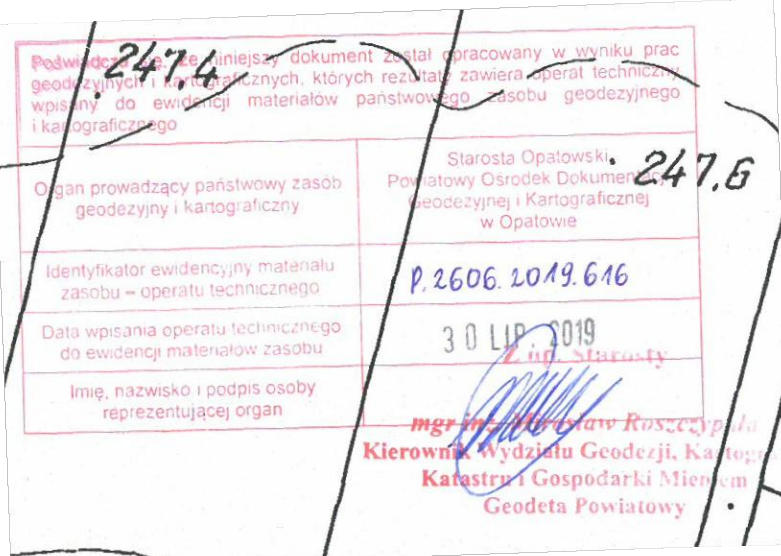 Poświadcza się, że niniejszy dokument został opracowany w wyniku prac
geodezyjnych i kartograficznych, których rezultaty zawiera operat techniczny
wpisany do ewidencji materiałów państwowego zasobu geodezyjnego
i kartograficznego
247.4
Organ prowadzący państwowy zasób
geodezyjny i kartograficzny
Starosta Opatowski
Powiatowy Ośrodek Dokumentacji
Geodezyjnej i Kartograficznej
w Opatowie
247.6
Identyfikator ewidencyjny materiału
zasobu – operatu technicznego
P.2606.2019.616
Data wpisania operatu technicznego
do ewidencji materiałów zasobu
30 LIP. 2019
Imię, nazwisko i podpis osoby
reprezentującej organ
Z up. Starosty
mgr inż. Mirosław Roszczypała
Kierownik Wydziału Geodezji, Kartogra
Katastru i Gospodarki Mieniem
Geodeta Powiatowy